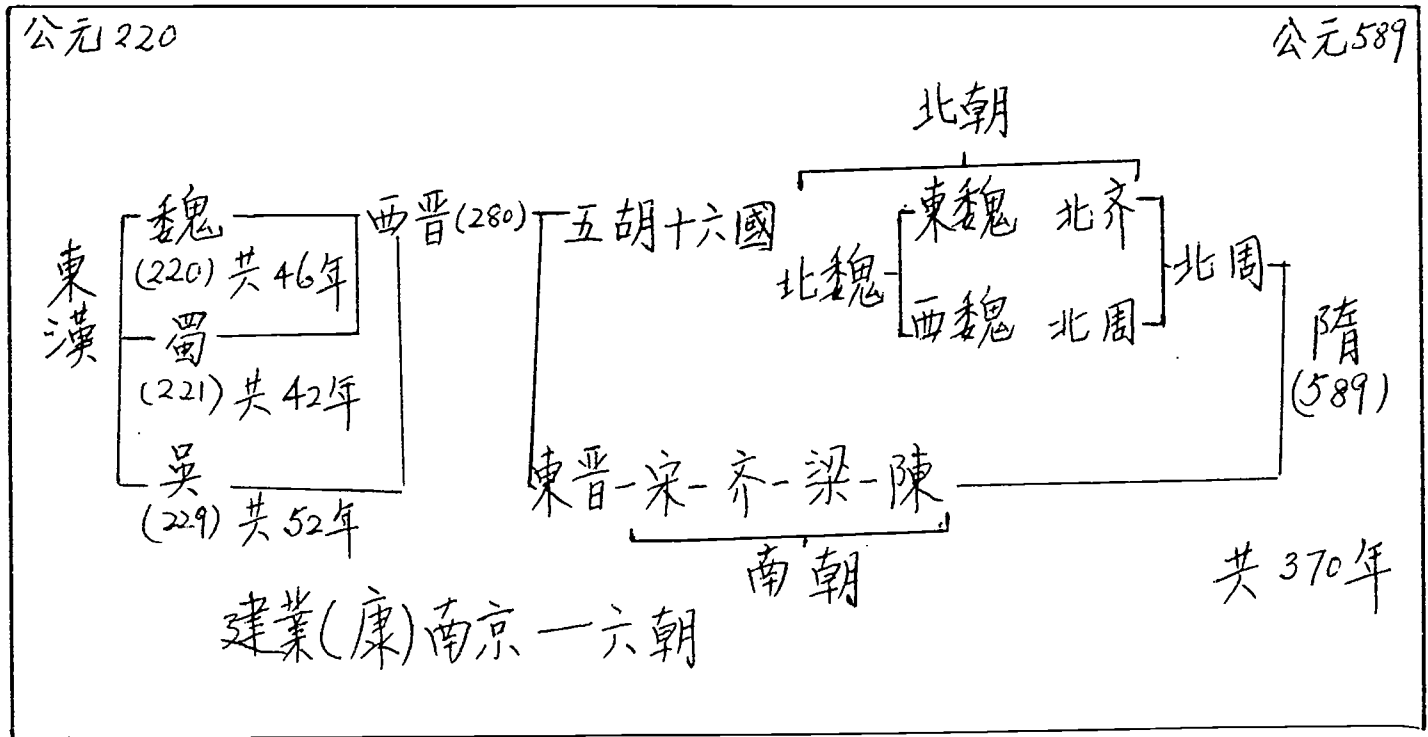 公元220
公元589
北朝
東漢
魏
(220) 共46年
蜀
(221) 共42年
吳
(229) 共52年
西晋(280)
五胡十六國
北魏
東魏 北齐
西魏 北周
北周
隋
(589)
東晋-宋-齐-梁-陳
南朝
共370年
建業(康)南京—六朝